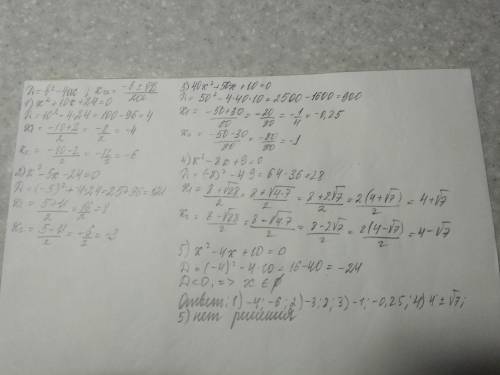 D=b²-4ac ; x₁,₂ = (-b±√D)/2a
1) x²+10x+24=0
D=10²-4·24=100-96=4
x₁=(-10+2)/2=-8/2=-4
x₂=(-10-2)/2=-12/2=-6
2) x²-5x-24=0
D=(-5)²+4·24=25+96=121
x₁=(5+11)/2=16/2=8
x₂=(5-11)/2=-6/2=-3
3) 40x²+50x+10=0
D=50²-4·40·10=2500-1600=900
x₁=(-50+30)/80=-20/80=-1/4=-0,25
x₂=(-50-30)/80=-80/80=-1
4) x²-8x+9=0
D=(-8)²-4·9=64-36=28
x₁=(8+√28)/2=(8+√4·7)/2=(8+2√7)/2=2(4+√7)/2=4+√7
x₂=(8-√28)/2=(8-√4·7)/2=(8-2√7)/2=2(4-√7)/2=4-√7
5) x²-4x+10=0
D=(-4)²-4·10=16-40=-24
D<0, => x∈∅
Ответ: 1) -4; -6; 2) -3; 3) -1; -0,25; 4) 4±√7;
5) нет решения